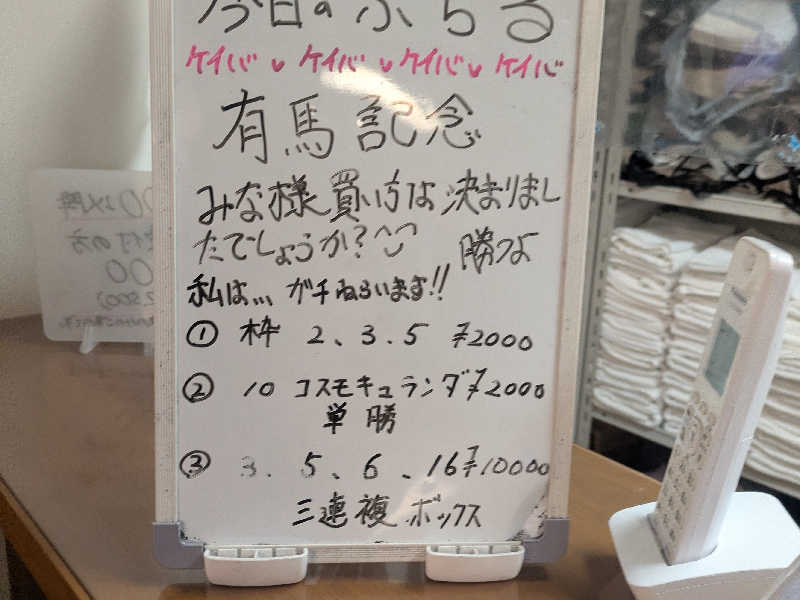 今日のぷちる
ケイバ ケイバ ケイバ ケイバ
有馬記念
みな様買い方は決まりまし
たでしょうか?
勝つよ
私は... ガチねらいます!!
① 枠 2、3.5 ¥2000
② 10 コスモキュランダ ¥2000
単勝
③ 3. 5、6、16 ¥10000
三連複ボックス